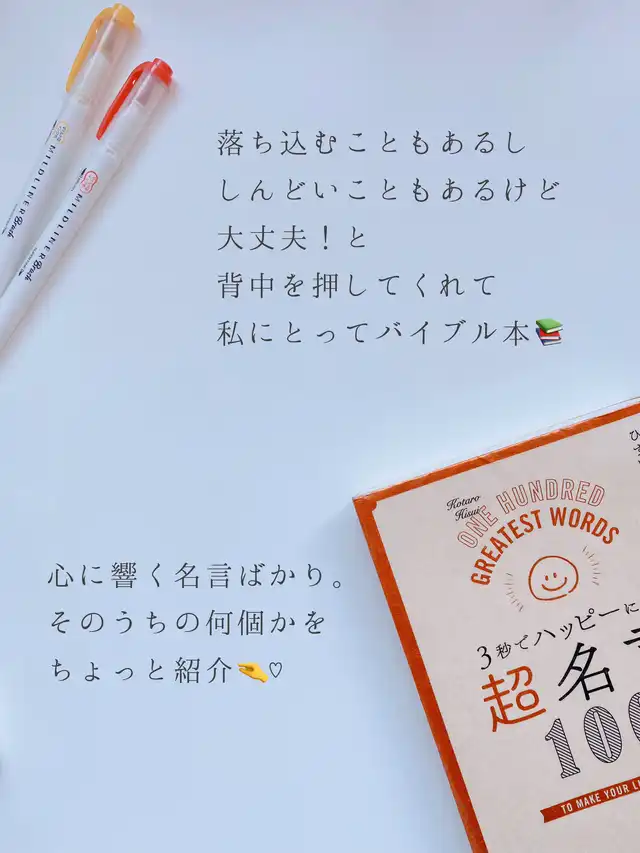 MILDLINER Brush
MILDLINER Brush
落ち込むこともあるし
しんどいこともあるけど
大丈夫！と
背中を押してくれて
私にとってバイブル本📚
心に響く名言ばかり。
そのうちの何個かを
ちょっと紹介🫴♡
Kotaro
Hisui
ONE HUNDRED
GREATEST WORDS
3秒でハッピーに
超名言
100
TO MAKE YOUR LI